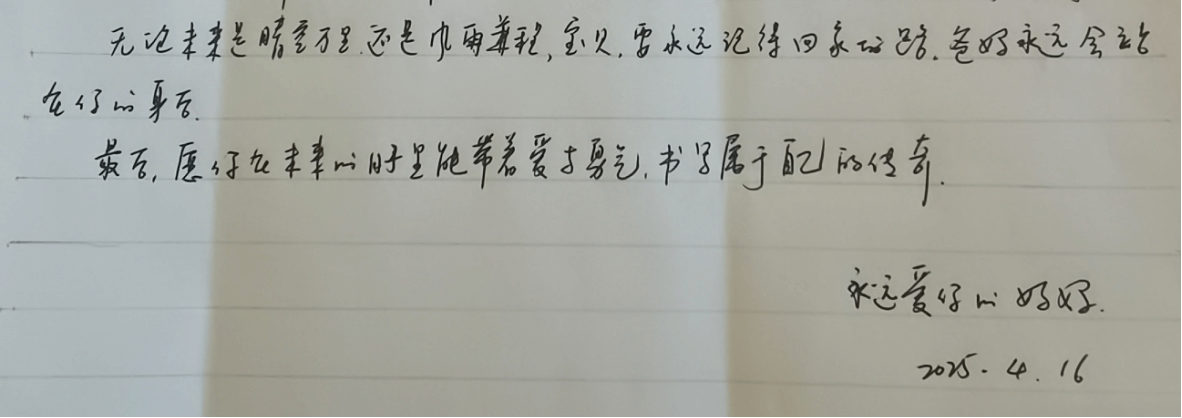 无论未来是晴空万里,还是风雨兼程,宝贝,要永远记得回家的路.爸妈永远会站
在你的身后.
最后,愿你在未来的时里能带着爱与勇气,书写属于自己的传奇.
永远爱你的妈妈.
2025.4.16